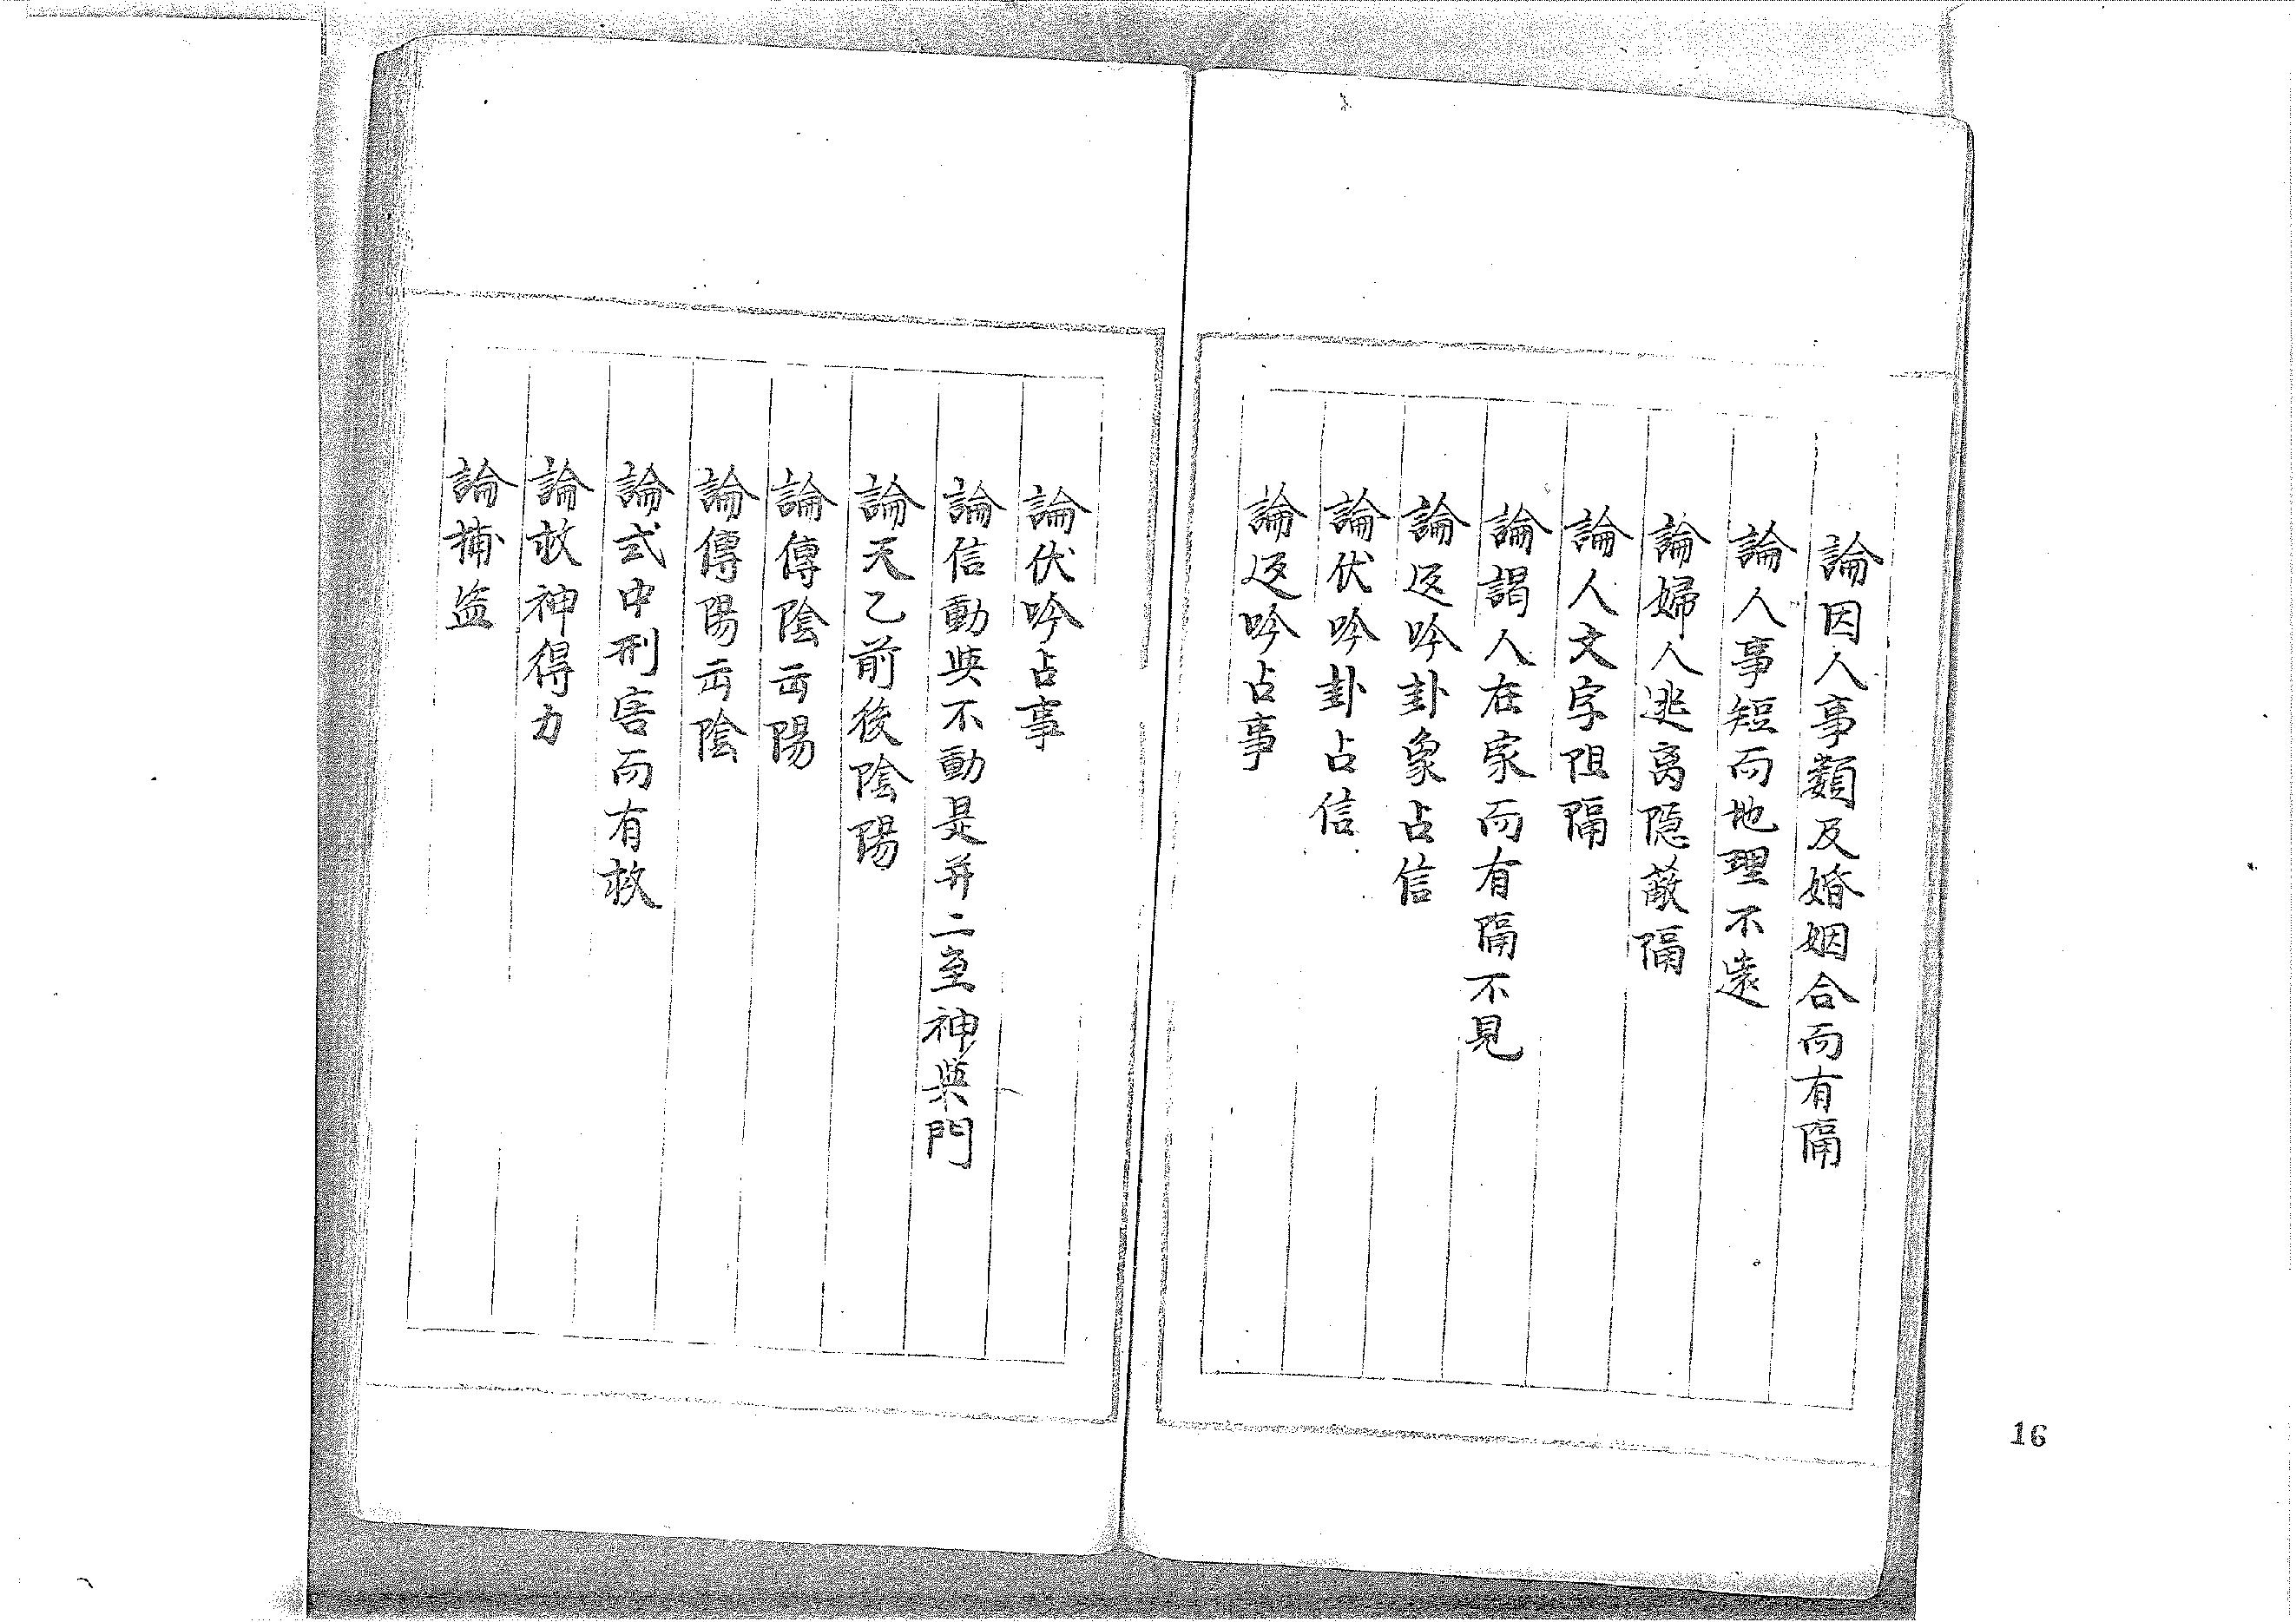 論因人事類及婚姻合而有隔
論人事短而地理不遠
論婦人逃离隐蔽隔
論人文字阻隔
論謁人在家而有隔不見
論返吟卦象占信
論伏吟卦占信
論返吟占事
論伏吟占事
論信動與不動是并二至神與門
論天乙前後陰陽
論傳陰云陽
論傳陽云陰
論式中刑害而有救
論救神得力
論捕盗
16